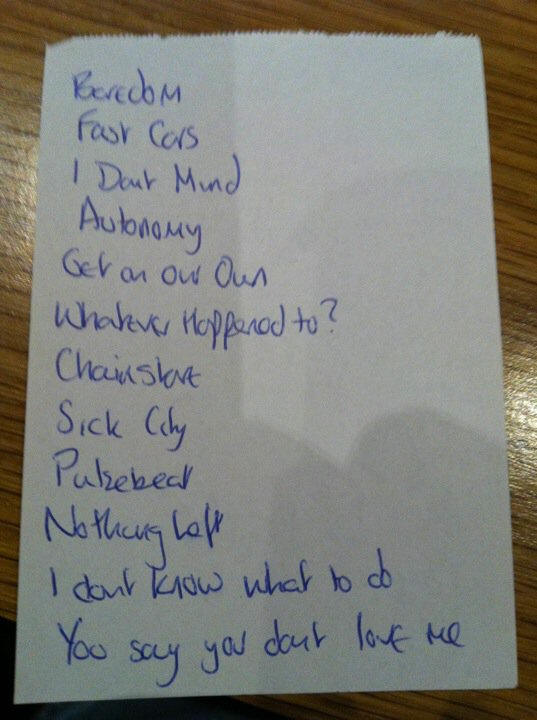 Boredom
Fast Cars
I Dont Mind
Autonomy
Get on our Own
Whatever Happened to?
Chainstore
Sick City
Pulsebeat
Nothing Left
I dont know what to do
You say you dont love me